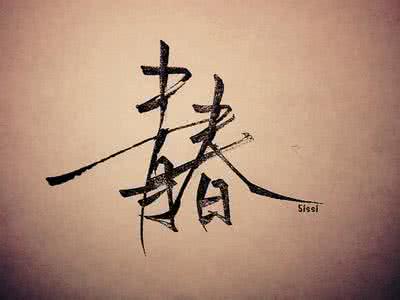 青春
Sissi